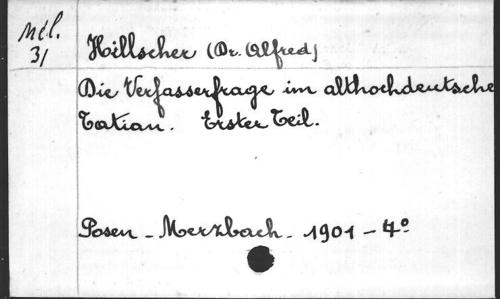 Mél.
31
Hillscher (Dr. Alfred)
Die Verfasserfrage im althochdeutsche
Tatian. Erster Teil.
Posen - Merzbach - 1901 - 4°